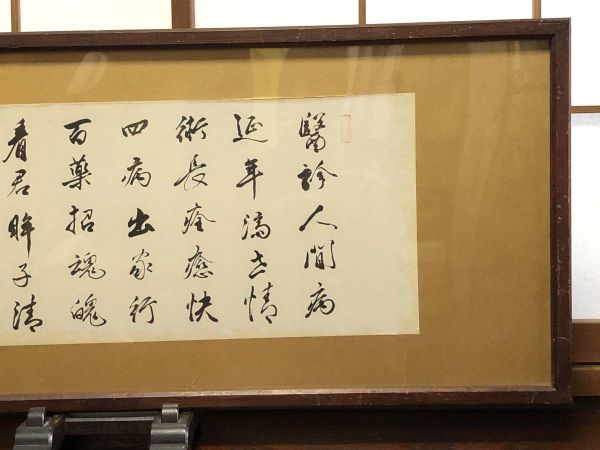 醫診人間病
延年濟世情
術長痊癒快
四病出家行
百藥招魂魄
看君眸子清